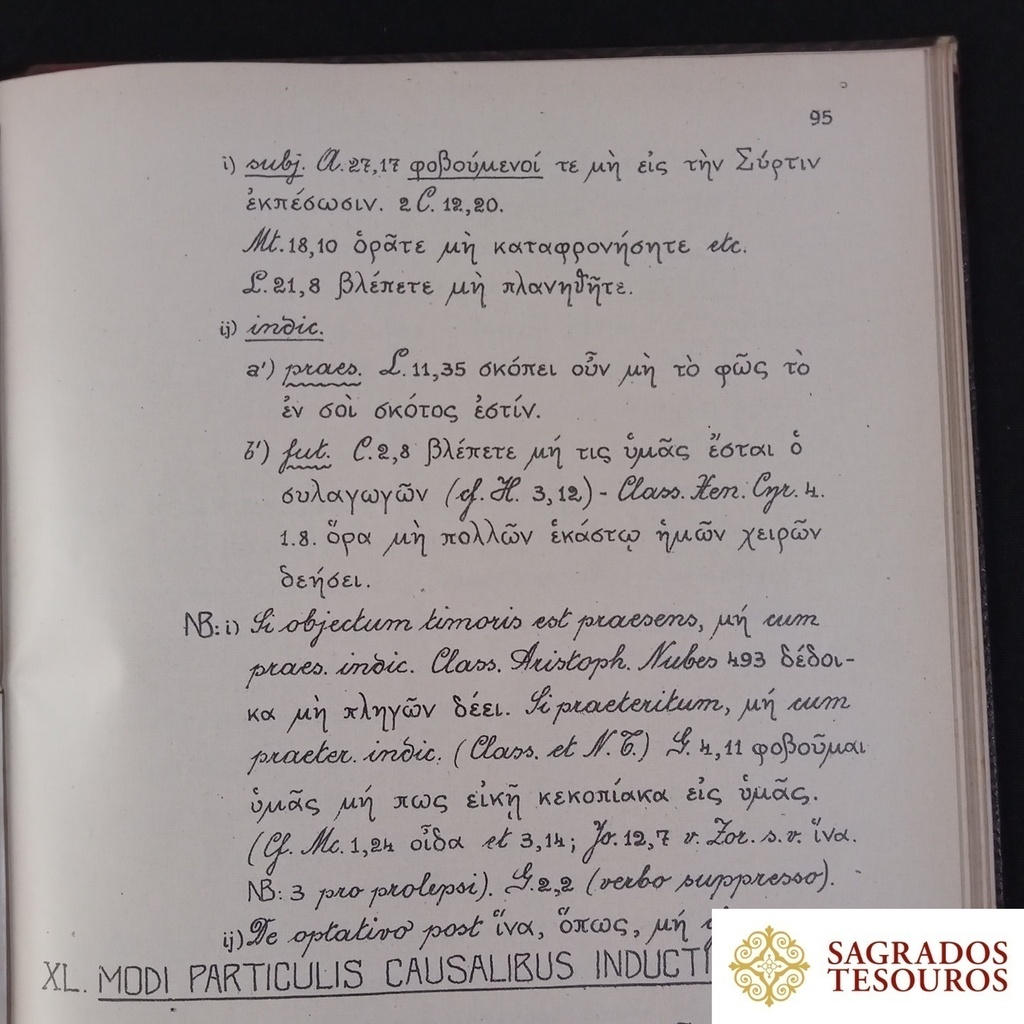 95
i) subj. A. 27,17 φοβούμενοί τε μὴ εἰς τὴν Σύρτιν
ἐκπέσωσιν. 2 C. 12,20.
Mt. 18,10 ὁρᾶτε μὴ καταφρονήσητε etc.
L. 21,8 βλέπετε μὴ πλανηθῆτε.
ij) indic.
a') praes. L. 11,35 σκόπει οὖν μὴ τὸ φῶς τὸ
ἐν σοὶ σκότος ἐστίν.
b') fut. C. 2,8 βλέπετε μή τις ὑμᾶς ἔσται ὁ
συλαγωγῶν (cf. H. 3,12) - Class. Xen. Cyr. 4.
1.8. ὅρα μὴ πολλῶν ἑκάστῳ ἡμῶν χειρῶν
δεήσει.
NB: i) Si objectum timoris est praesens, μή cum
praes. indic. Class. Aristoph. Nubes 493 δέδοι-
κα μὴ πληγῶν δέει. Si praeteritum, μή cum
praeter. indic. (Class. et N.T.) G. 4,11 φοβοῦμαι
ὑμᾶς μή πως εἰκῇ κεκοπίακα εἰς ὑμᾶς.
(Cf. Mc. 1,24 οἶδα et 3,14; Jo. 12,7 v. Zor. s.v. ἵνα.
NB: 3 pro prolepsi). G. 2,2 (verbo suppresso).
ij) De optativo post ἵνα, ὅπως, μή
XL. MODI PARTICULIS CAUSALIBUS INDUCTI
SAGRADOS
TESOUROS